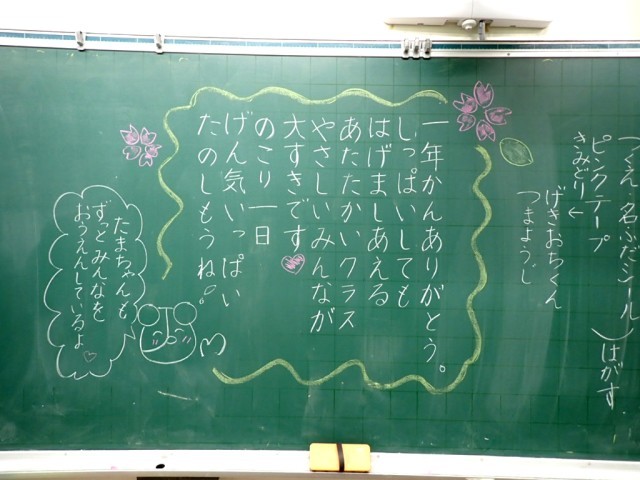 つくえ、名ふだシール
ピンクテープ
きみどり←
はがす
げきおちくん
つまようじ
一年かんありがとう。
しっぱいしても
はげましあえる
あたたかいクラス
やさしいみんなが
大すきです
のこり一日
げん気いっぱい
たのしもうね。
たまちゃんも
ずっとみんなを
おうえんしているよ